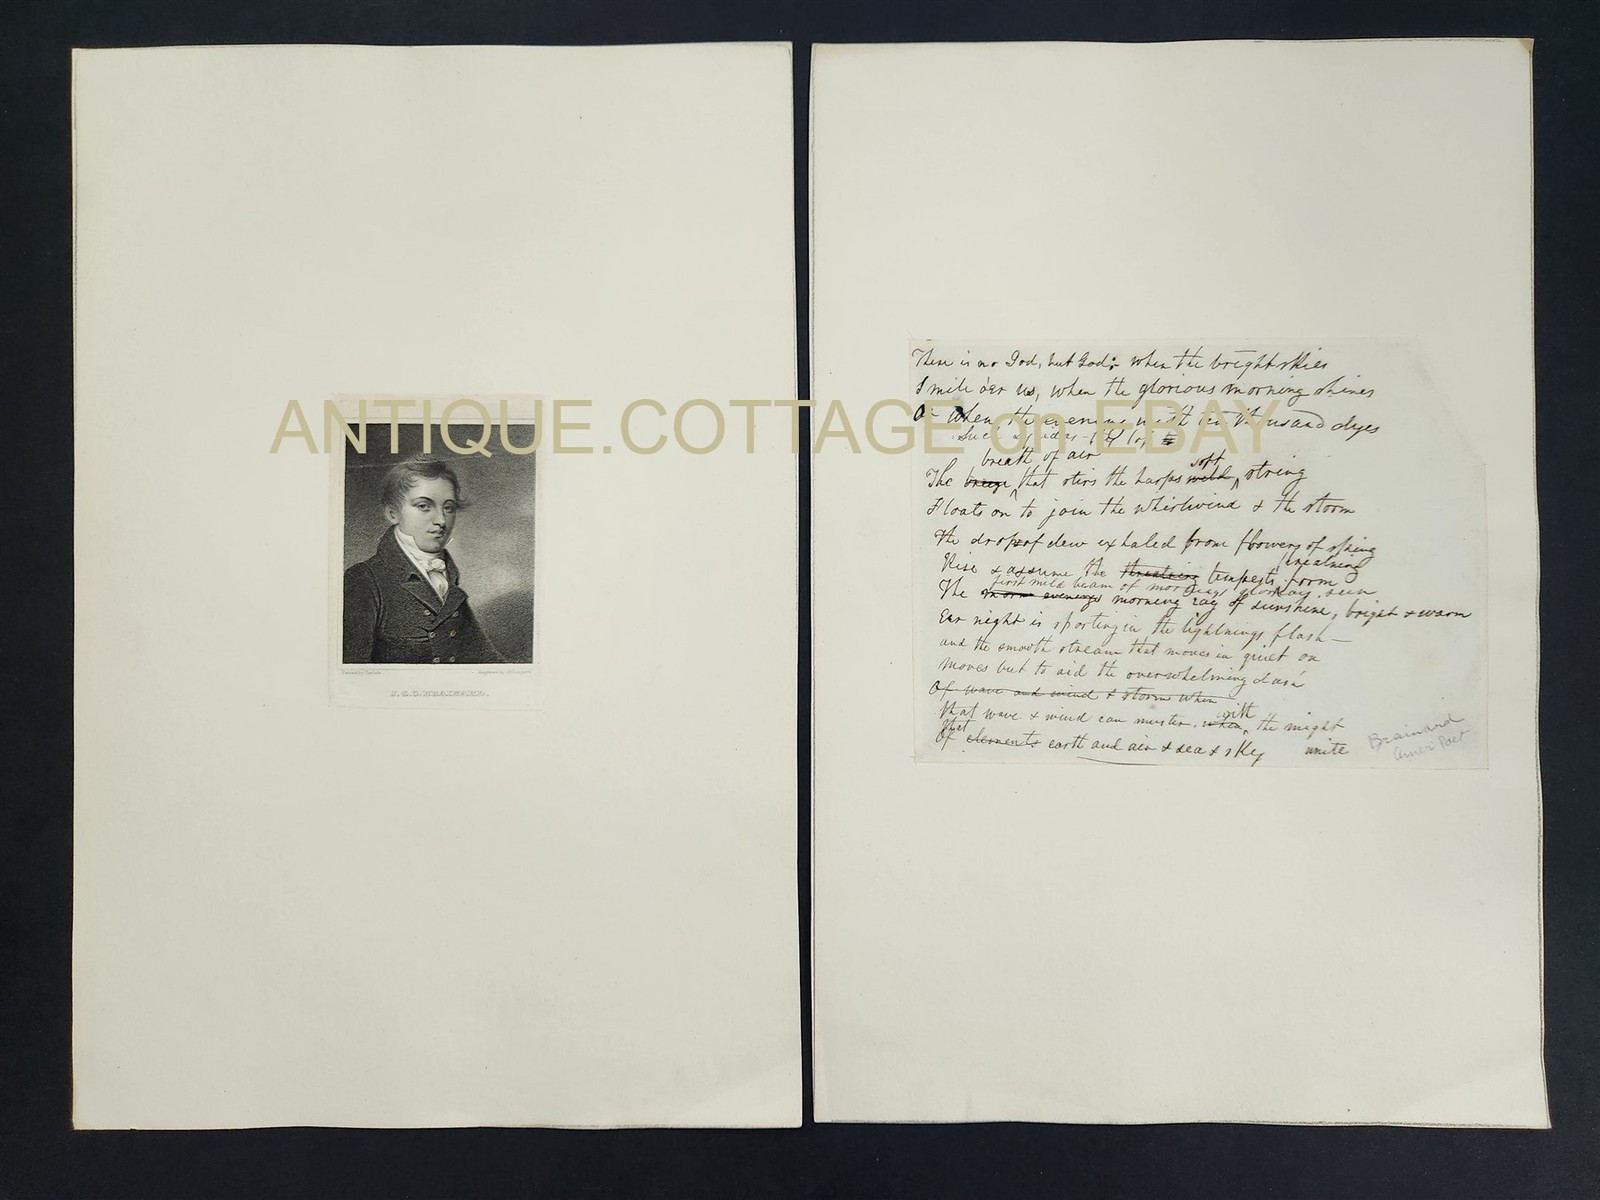 ANTIQUE.COTTAGE on EBAY
J. G. C. BRAINARD.
There is no God, but God; when the bright skies
Smile o'er us, when the glorious morning shines
Or when the evening with ten thousand dyes
breath of air
soft
The breeze that stirs the harps wild string
Floats on to join the whirlwind & the storm
The drop of dew exhaled from flowers of spring
threatning
Rise & assume the threatning tempests form
first mild beam of morning's glorious sun
The morn evenings morning ray of sunshine, bright & warm
Ear night is sporting in the lightnings flash—
and the smooth stream that moves in quiet on
moves but to aid the overwhelming dash
Of wave and wind & storms when
with
that wave & wind can muster, when the might
that
Of elements earth and air & sea & sky unite
Brainard
Amer Poet